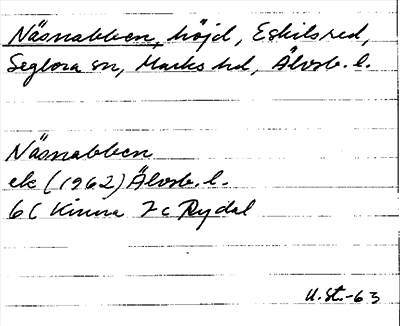 Näsnabben, höjd, Eskilsred,
Seglora sn, Marks hd, Älvsb. l.
Näsnabben
ek (1962) Älvsb. l.
6C Kinna 7c Rydal
U.St.-63